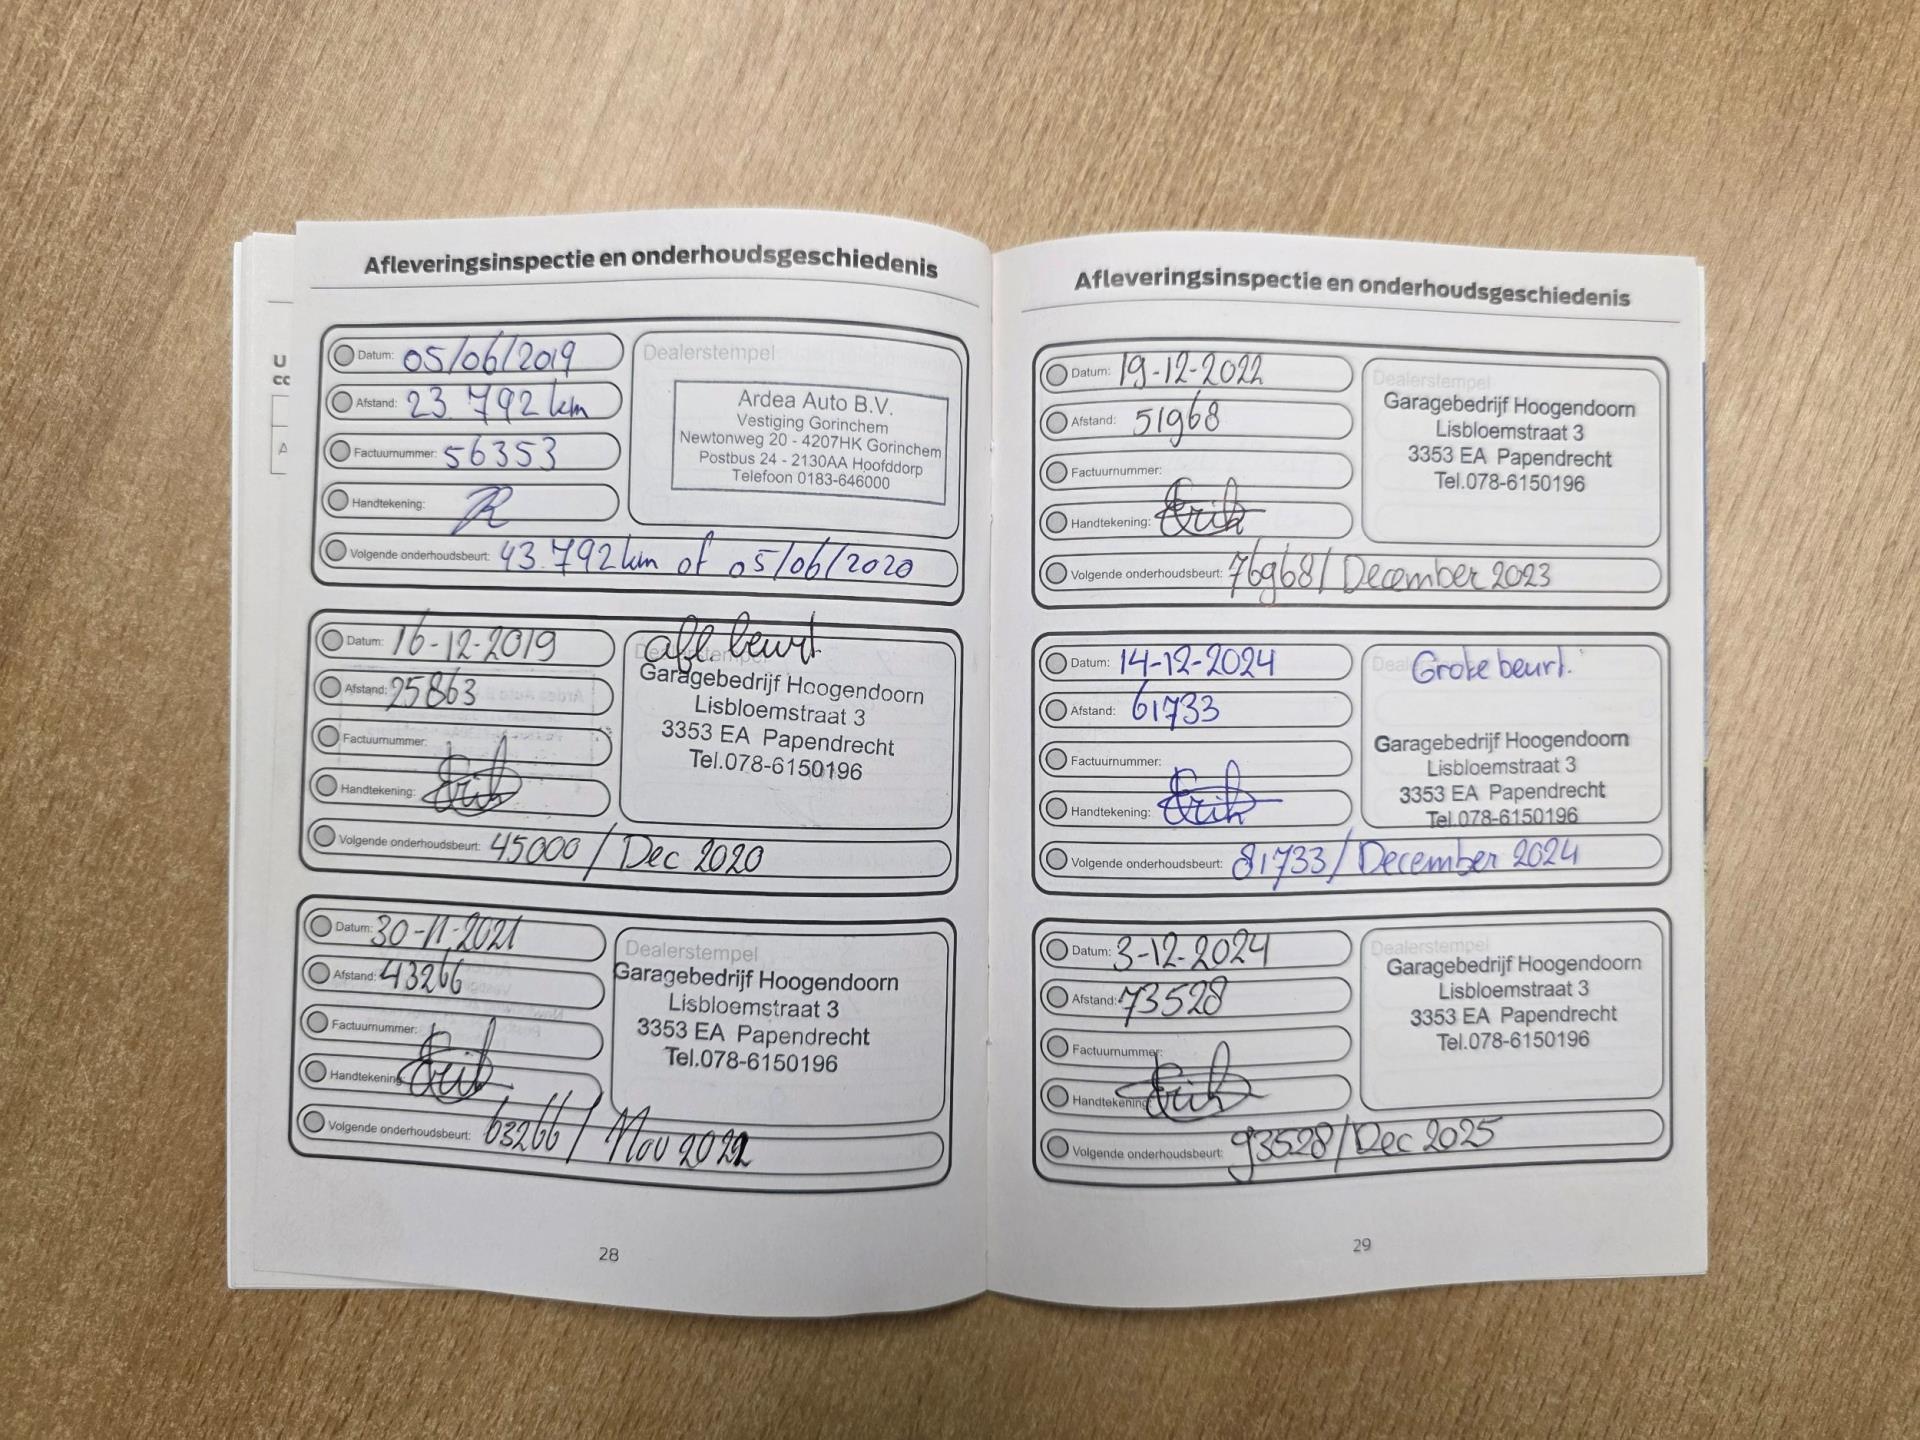 Afleveringsinspectie en onderhoudsgeschiedenis
Datum: 05/06/2019
Afstand: 23.792 km
Factuurnummer: 56353
Handtekening:
Dealerstempel
Ardea Auto B.V.
Vestiging Gorinchem
Newtonweg 20 - 4207HK Gorinchem
Postbus 24 - 2130AA Hoofddorp
Telefoon 0183-646000
Volgende onderhoudsbeurt: 43.792 km of 05/06/2020
Datum: 16-12-2019
Afstand: 25863
Factuurnummer:
Handtekening: Erik
Dealerstempel
afl. beurt
Garagebedrijf Hoogendoorn
Lisbloemstraat 3
3353 EA Papendrecht
Tel.078-6150196
Volgende onderhoudsbeurt: 45000 / Dec 2020
Datum: 30-11-2021
Afstand: 43266
Factuurnummer:
Handtekening: Erik
Dealerstempel
Garagebedrijf Hoogendoorn
Lisbloemstraat 3
3353 EA Papendrecht
Tel.078-6150196
Volgende onderhoudsbeurt: 63266 / Nov 2022
28
Afleveringsinspectie en onderhoudsgeschiedenis
Datum: 19-12-2022
Afstand: 51968
Factuurnummer:
Handtekening: Erik
Dealerstempel
Garagebedrijf Hoogendoorn
Lisbloemstraat 3
3353 EA Papendrecht
Tel.078-6150196
Volgende onderhoudsbeurt: 76968 / December 2023
Datum: 14-12-2024
Afstand: 61733
Factuurnummer:
Handtekening: Erik
Grote beurt.
Garagebedrijf Hoogendoorn
Lisbloemstraat 3
3353 EA Papendrecht
Tel.078-6150196
Volgende onderhoudsbeurt: 81733 / December 2024
Datum: 3-12-2024
Afstand: 73528
Factuurnummer:
Handtekening: Erik
Dealerstempel
Garagebedrijf Hoogendoorn
Lisbloemstraat 3
3353 EA Papendrecht
Tel.078-6150196
Volgende onderhoudsbeurt: 93528 / Dec 2025
29